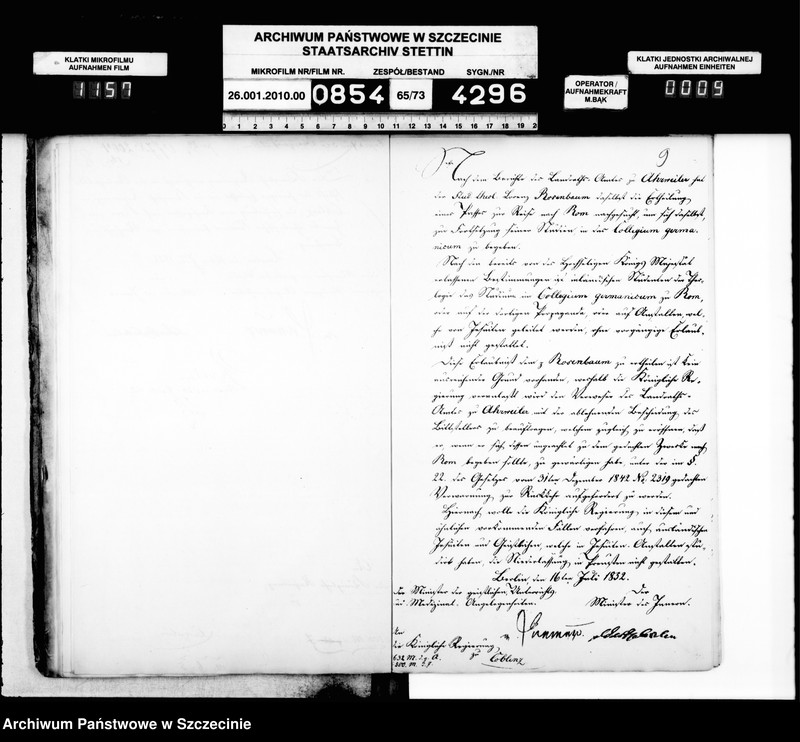 ARCHIWUM PAŃSTWOWE W SZCZECINIE
STAATSARCHIV STETTIN
MIKROFILM NR/FILM NR. ZESPÓŁ/BESTAND SYGN./NR
26.001.2010.00 0854 65/73 4296
KLATKI MIKROFILMU
AUFNAHMEN FILM
1157
OPERATOR /
AUFNAHMEKRAFT
M.BĄK
KLATKI JEDNOSTKI ARCHIWALNEJ
AUFNAHMEN EINHEITEN
0009
0 1 2 3 4 5 6 7 8 9 10 11 12 13 14 15 16 17 18 19 2
9
Nach dem Berichte des Landraths-Amtes zu Ahrweiler hat
der Stud. theol. Lorenz Rosenbaum daselbst die Ertheilung
eines Passes zur Reise nach Rom nachgesucht, um sich daselbst,
zur Fortsetzung seiner Studien in das Collegium germa-
nicum zu begeben.
Nach den bereits von des Hochseeligen Königs Majestät
erlassenen Bestimmungen ist inländischen Studenten der Theo-
logie das Studium im Collegium germanicum zu Rom,
wie auf der dortigen Propaganda, wie auf Anstalten, wel-
che von Jesuiten geleitet werden, ohne vorgängige Erlaub-
niß nicht gestattet.
Diese Erlaubniß dem p Rosenbaum zu ertheilen ist kein
ausreichender Grund vorhanden, weshalb die Königliche Re-
gierung veranlaßt wird den Verweser des Landraths-
Amtes zu Ahrweiler mit der ablehnenden Bescheidung des
Bittstellers zu beauftragen, welchem zugleich zu eröffnen, daß
er, wenn er sich dessen ungeachtet zu dem gedachten Zwecke nach
Rom begeben sollte, zu gewärtigen habe, unter der im §.
22. des Gesetzes vom 31ten Dezember 1842 No. 2319 gedachten
Verwarnung, zur Rückkehr aufgefordert zu werden.
Hiernach wolle die Königliche Regierung in diesem und
ähnlichen vorkommenden Fällen verfahren, auch ausländischen
Jesuiten und Geistlichen, welche in Jesuiten-Anstalten stu-
dirt haben, die Niederlassung in Preußen nicht gestatten.
Berlin, den 16ten Juli 1852.
Der Minister der geistlichen, Unterrichts-
u. Medizinal-Angelegenheiten.
Der
Minister des Innern.
v. Raumer. v. Westphalen
An
die Königliche Regierung
zu Coblenz
Archiwum Państwowe w Szczecinie